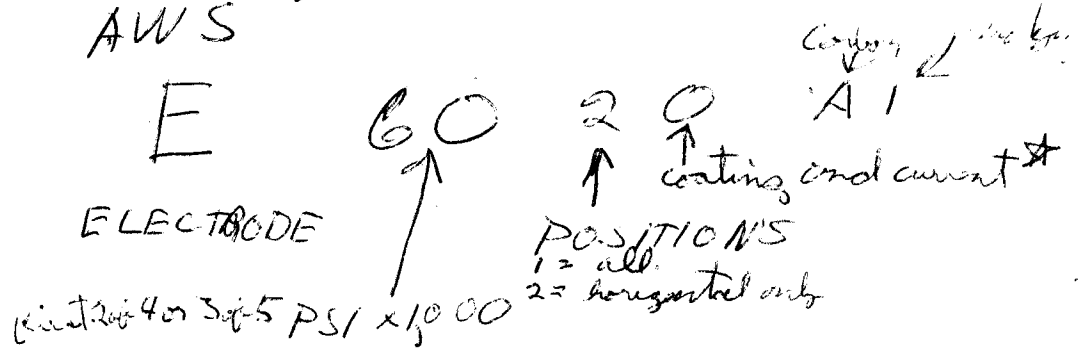 AWS
Carbon
E 60 20 A1
coating and current
ELECTRODE
POSITIONS
1 = all
2 = horizontal only
First 2 of 4 or 3 of 5 PSI x 1,000